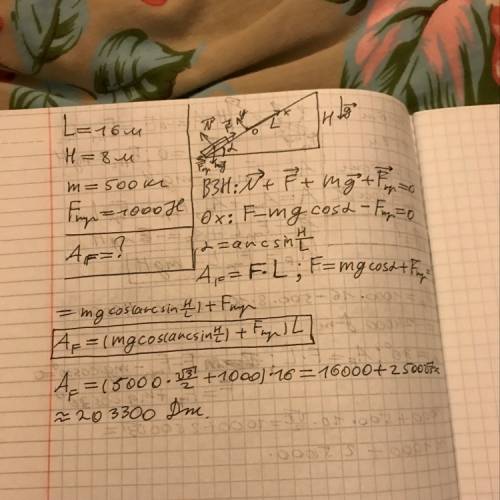 L = 16 м
H = 8 м
m = 500 кг
Fтр = 1000 Н
A_F = ?
N F x
L H g
α o
Fтр mg
ВЗН: N + F + mg + Fтр = 0
Ox: F - mg cosα - Fтр = 0
α = arcsin H/L
A_F = F · L ; F = mg cosα + Fтр =
= mg cos(arcsin H/L) + Fтр
A_F = (mg cos(arcsin H/L) + Fтр) L
A_F = (5000 · √3/2 + 1000) · 16 = 16000 +
≈ 203300 Дж.